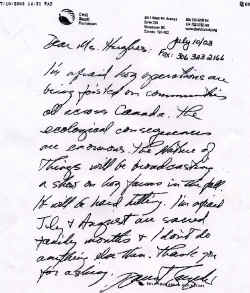 Dear Ms. Hughes. July 10/03
Fax: 306 383 2166
I'm afraid hog operations are
being foisted on communities
all across Canada. The
ecological consequences
are enormous. The Nature of
Things will be broadcasting
a show on hog farms in the fall.
It will be hard hitting. I'm afraid
July & August are sacred
family months & I don't do
anything else then. Thank you
for asking.